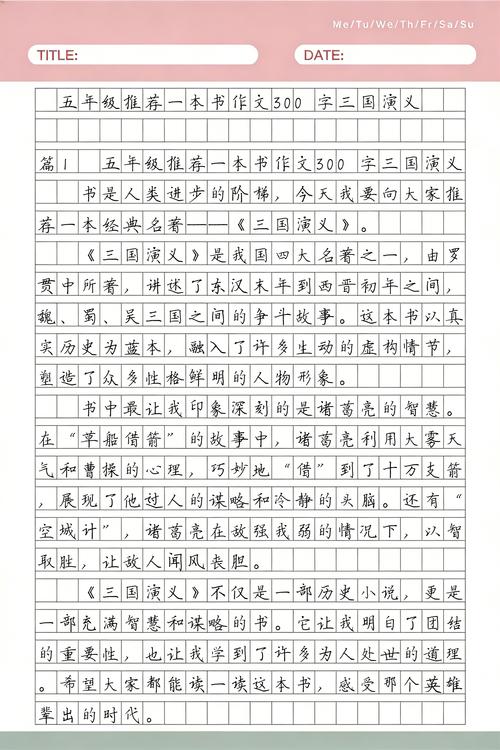 Me/Tu/We/Th/Fr/Sa/Su
TITLE:
DATE:
五年级推荐一本书作文300 字三国演义
篇1 五年级推荐一本书作文300 字三国演义
书是人类进步的阶梯，今天我要向大家推
荐一本经典名著——《三国演义》。
《三国演义》是我国四大名著之一，由罗
贯中所著，讲述了东汉末年到西晋初年之间，
魏、蜀、吴三国之间的争斗故事。这本书以真
实历史为蓝本，融入了许多生动的虚构情节，
塑造了众多性格鲜明的人物形象。
书中最让我印象深刻的是诸葛亮的智慧。
在“草船借箭”的故事中，诸葛亮利用大雾天
气和曹操的心理，巧妙地“借”到了十万支箭
，展现了他过人的谋略和冷静的头脑。还有“
空城计”，诸葛亮在敌强我弱的情况下，以智
取胜，让敌人闻风丧胆。
《三国演义》不仅是一部历史小说，更是
一部充满智慧和谋略的书。它让我明白了团结
的重要性，也让我学到了许多为人处世的道理
。希望大家都能读一读这本书，感受那个英雄
辈出的时代。